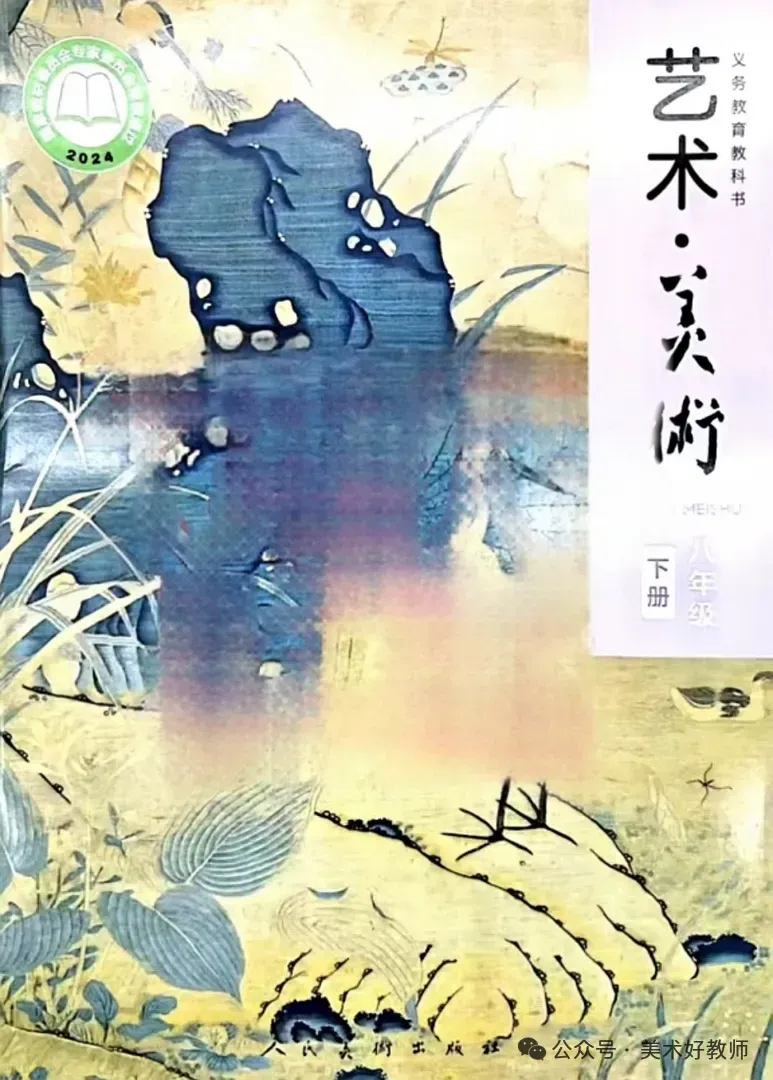 2024
义务教育教科书
艺术·美術
MEISHU
八年级
下册
人民美术出版社
公众号·美术好教师